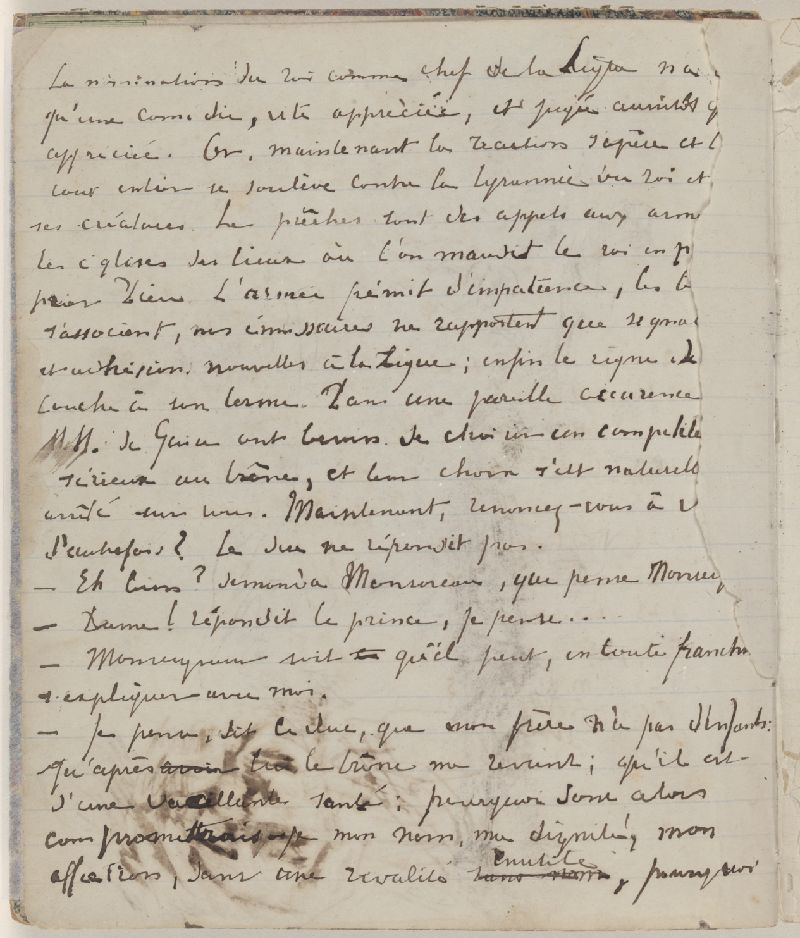 La nomination du roi comme chef de la Ligue n'a
qu'une comédie, vite appréciée, et jugée aussitôt q
appréciée. Or, maintenant la réaction s'opère et l
cour entier se soulève contre la tyrannie du roi et
ses créatures. Le prêches sont des appels aux arm
les églises des lieux où l'on maudit le roi en p
prier Dieu L'armée frémit d'impatience, les b
s'associent, nos émissaires ne rapportent que signa
et adhésions nouvelles à la Ligue; enfin le règne de
touche à son terme. Dans une pareille occurence
MM. de Guise ont besoin de choisir un compétite
sérieux au trône, et leur choix s'est naturell
arrêté sur vous. Maintenant, renoncez-vous à v
d'autrefois? Le duc ne répondit pas.
— Eh bien? demanda Monsoreau, que pense Monseig
— Dame! répondit le prince, je pense...
— Monseigneur sait qu'il peut, en toute franchi
s'expliquer avec moi.
— Je pense, dit le duc, que mon frère n'a pas d'enfants:
qu'après avoir lui le trône me revient; qu'il est
d'une vacillante santé; pourquoi donc alors
compromettrais-je mon nom, ma dignité, mon
affection, dans une rivalité sans nom inutile, pourquoi